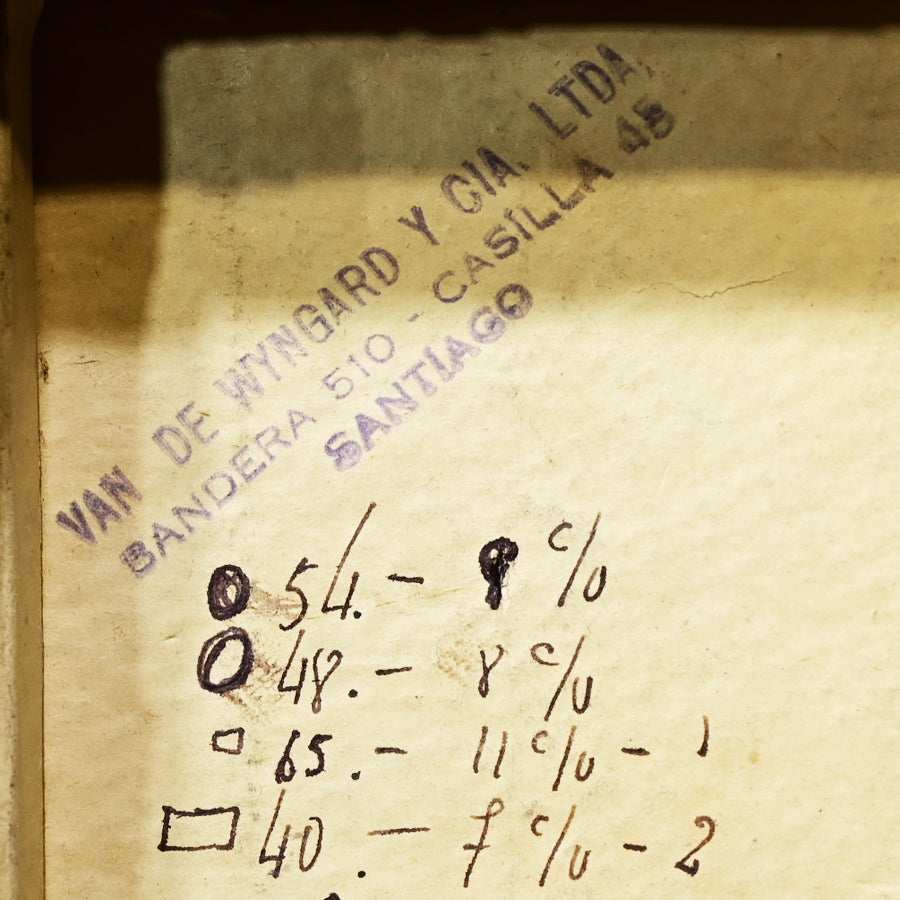 VAN DE WYNGARD Y CIA. LTDA.
BANDERA 510 - CASILLA 45
SANTIAGO
54.- 9 c/u
48.- 8 c/u
65.- 11 c/u - 1
40.- 7 c/u - 2